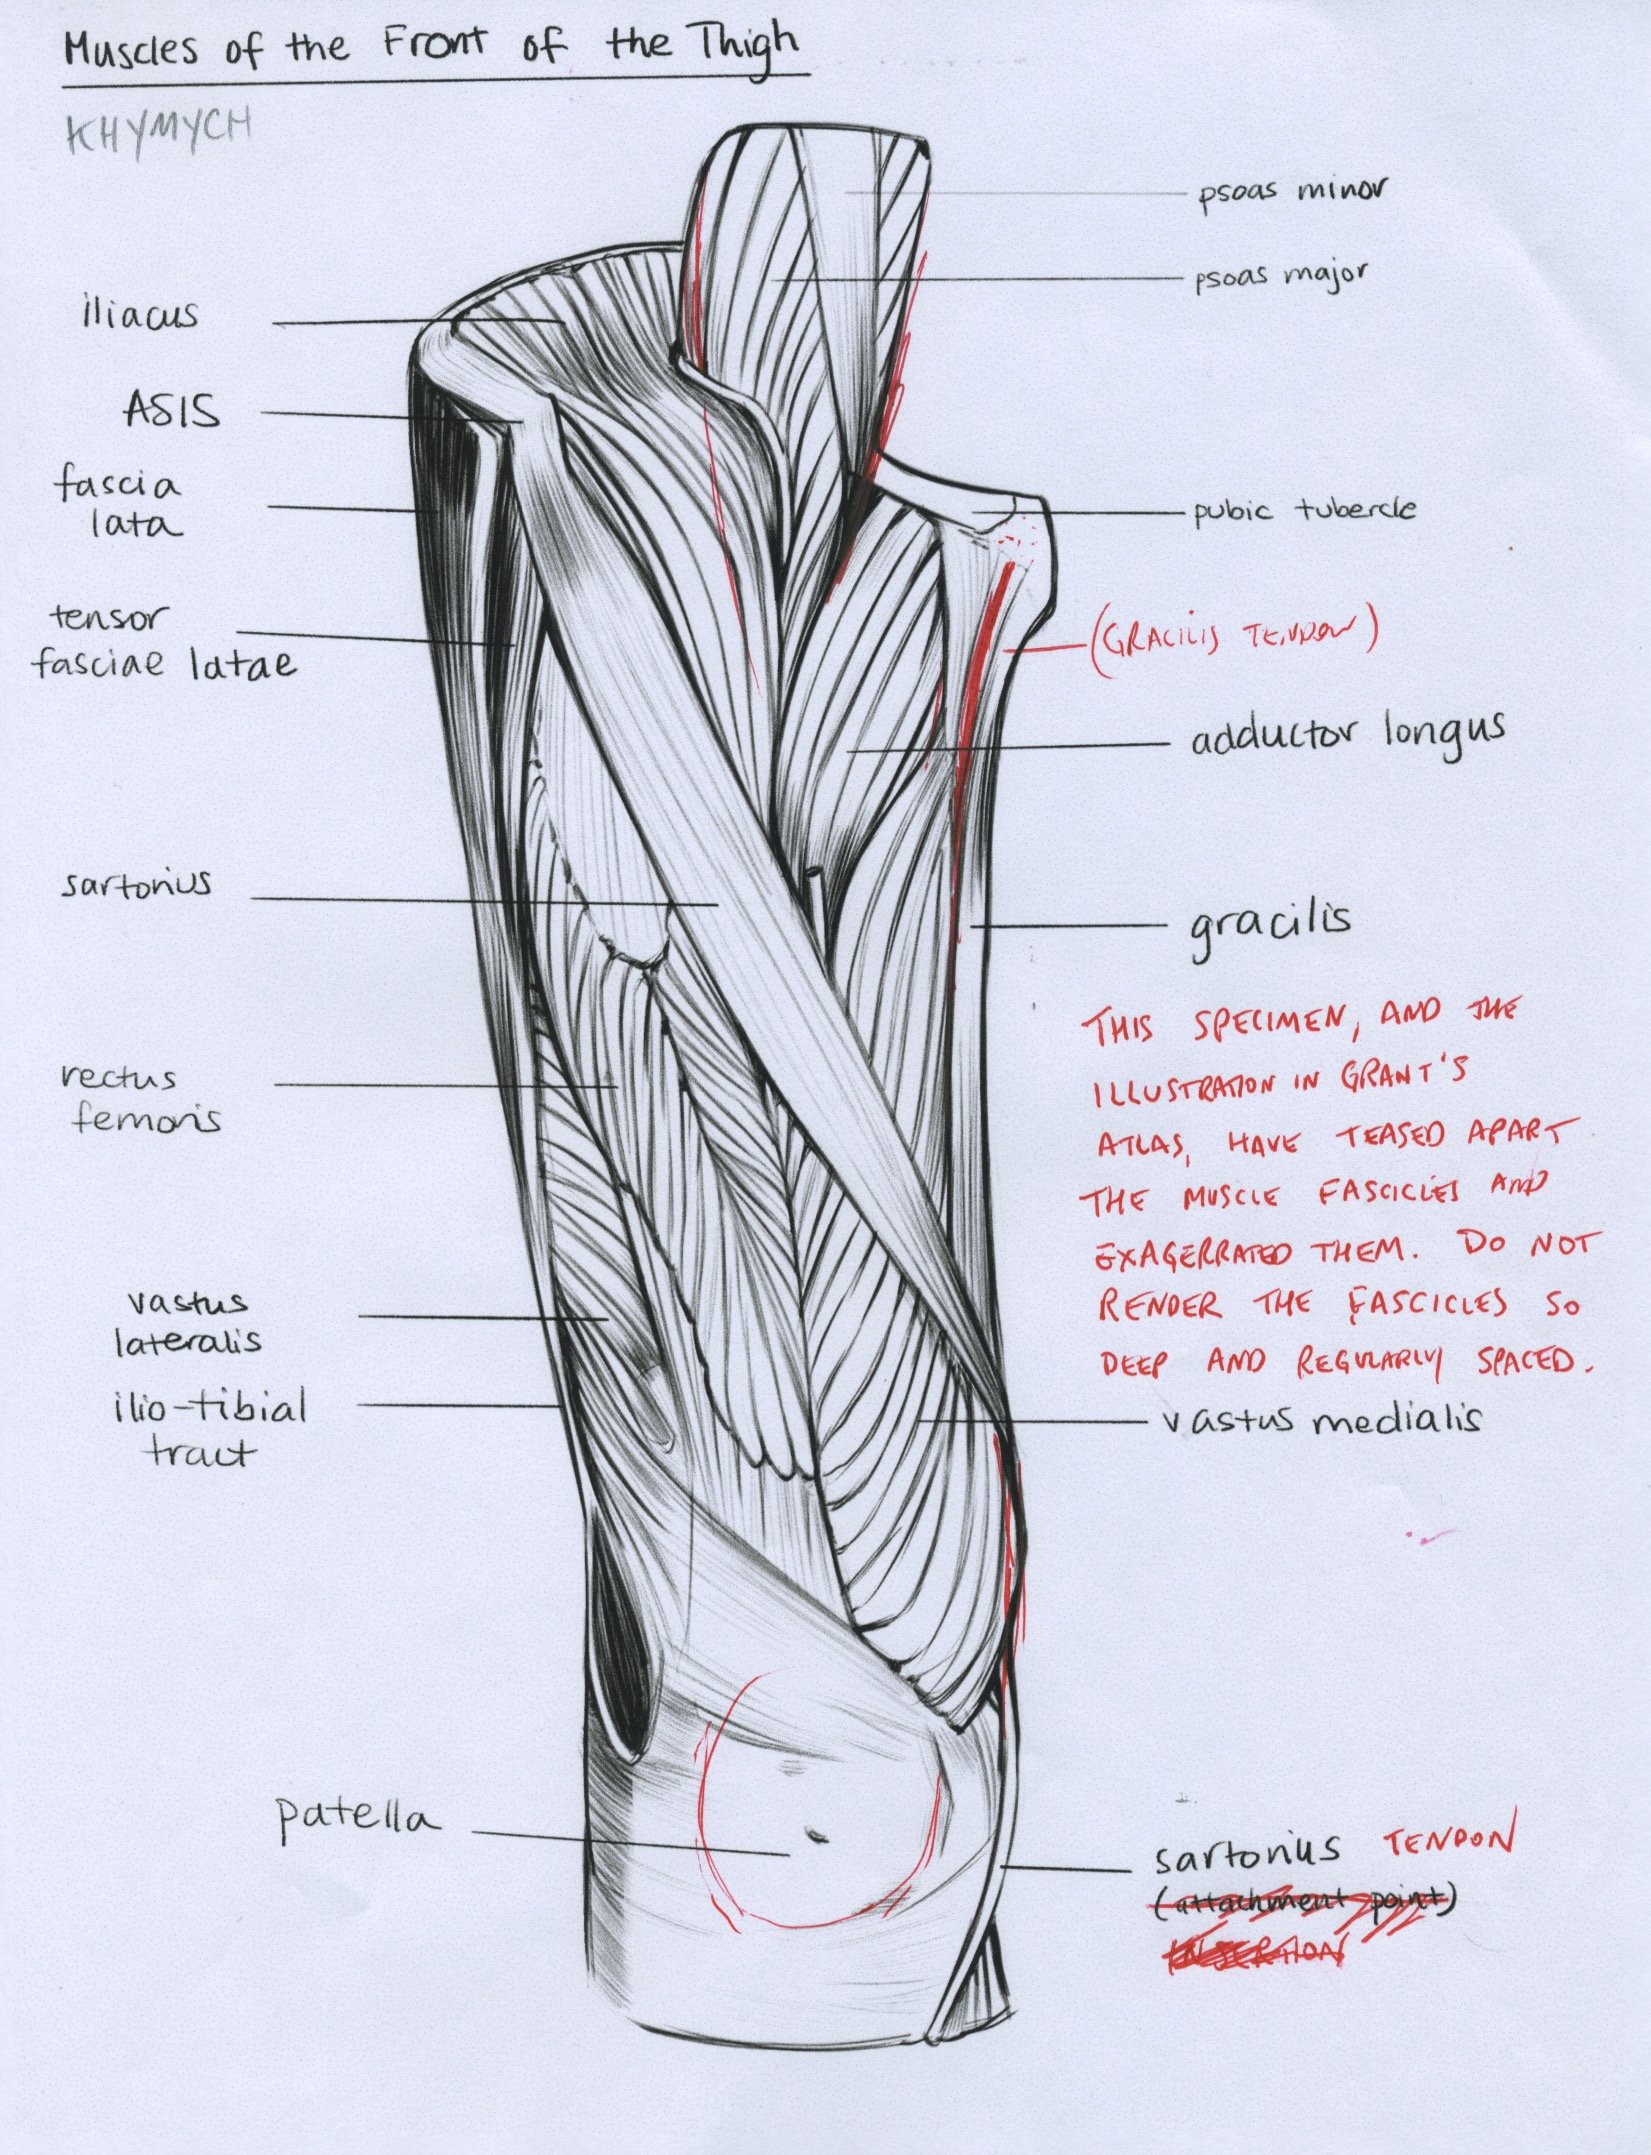 Muscles of the Front of the Thigh
KHYMYCH
psoas minor
psoas major
iliacus
ASIS
fascia
lata
pubic tubercle
tensor
fasciae latae
(GRACILIS TENDON)
adductor longus
sartorius
gracilis
THIS SPECIMEN, AND THE
ILLUSTRATION IN GRANT'S
ATLAS, HAVE TEASED APART
THE MUSCLE FASCICLES AND
EXAGERRATED THEM. DO NOT
RENDER THE FASCICLES SO
DEEP AND REGULARLY SPACED.
rectus
femoris
vastus
lateralis
ilio-tibial
tract
vastus medialis
patella
sartorius TENDON
(attachment point)
INSERTION